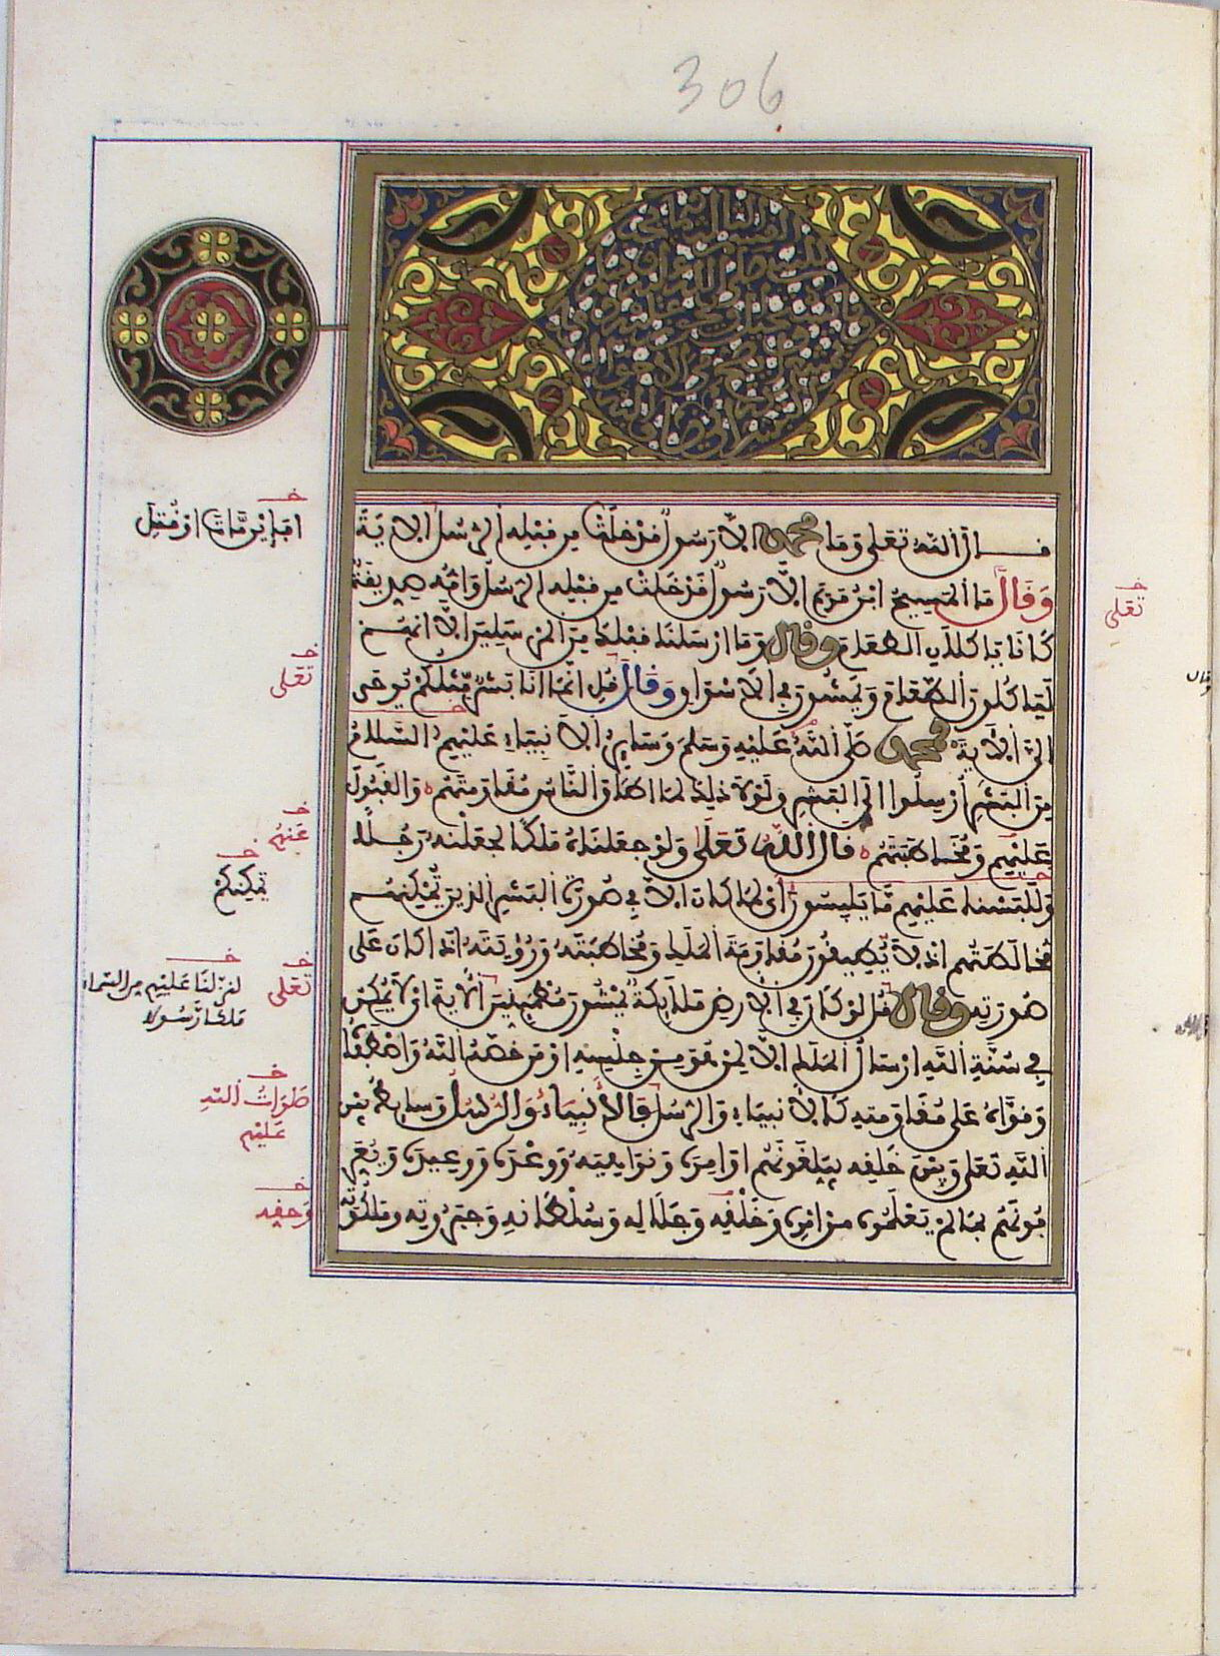 306
القسم الثالث فيما يجب
قال الله تعلى وما محمد الا رسول قد خلت من قبله الرسل الاية
وقال ما المسيح ابن مريم الا رسول قد خلت من قبله الرسل وامه صديقة
كانا ياكلان الطعام وقال وما ارسلنا قبلك من المرسلين الا انهم
لياكلون الطعام ويمشون في الاسواق وقال قل انما انا بشر مثلكم يوحى
الي الاية محمد صلى الله عليه وسلم وسائر الانبياء عليهم السلام
من البشر ارسلوا الى البشر ولولا ذلك لما اطاق الناس مقاومتهم والقبول
عليهم ومخاطبتهم قال الله تعلى ولو جعلناه ملكا لجعلنه رجلا
وللبسنا عليهم ما يلبسون اى لما كان الا في صورة البشر الذين يمكنهم
مخالطتهم اذ لا يطيقون مقاومة الملك ومخاطبته ورؤيته اذا كان على
صورته وقال قل لو كان في الارض ملائكة يمشون مطمئنين الاية اى لا يمكن
في سنة الله ارسال الملك الا لمن هو من جنسه او من خصه الله واصطفاه
وقواه على مقاومته كالانبياء والرسل فالانبياء والرسل وسائط بين
الله تعلى وبين خلقه يبلغونهم اوامره ونواهيه ووعده ووعيده ويعر
فونهم بما لم يعلموه من امره وخلقه وجلاله وسلطانه وجبروته وملكوته
افإين مات او قتل
تعلى
تعلى
عنهم
يمكنكم
تعلى
لنزلنا عليهم من السماء
ملكا رسولا
صلوات الله
عليهم
وحقه